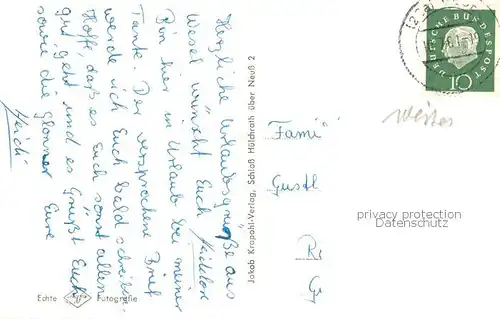 Herzliche Urlaubsgrüße aus
Wesel wünscht Euch Heidelore
Bin hier in Urlaub bei meiner
Tante. Der versprochene Brief
werde ich Euch bald schreiben.
Hoffe daß es Euch sonst allen
gut geht und es Grüßt Euch
sowie die Glonner Eure
Heidi
Jakob Krapohl-Verlag, Schloß Hülchrath über Neuß 2
Echte Fotografie
DEUTSCHE BUNDESPOST
10
Fami
Gustl
R
G
privacy protection
Datenschutz